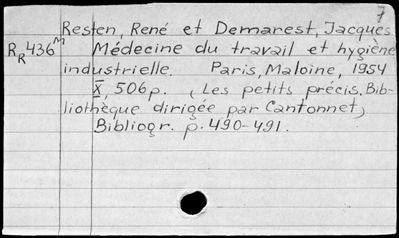 7
Resten, René et Demarest, Jacques
R_R 436 M Médecine du travail et hygiène
industrielle. Paris, Maloine, 1954
X, 506 p. (Les petits précis. Bib-
liothèque dirigée par Cantonnet)
Bibliogr. p. 490-491.